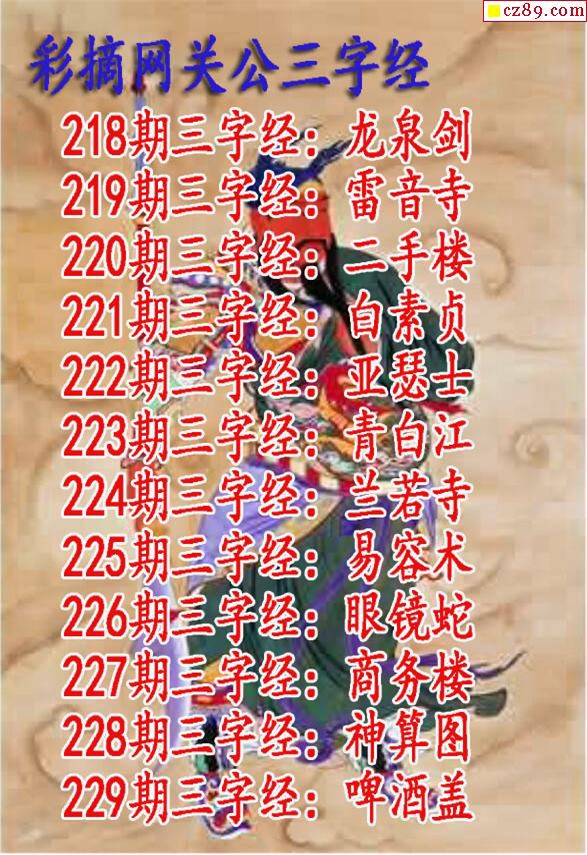 cz89.com
彩摘网关公三字经
218期三字经：龙泉剑
219期三字经：雷音寺
220期三字经：二手楼
221期三字经：白素贞
222期三字经：亚瑟士
223期三字经：青白江
224期三字经：兰若寺
225期三字经：易容木
226期三字经：眼镜蛇
227期三字经：商务楼
228期三字经：神算图
229期三字经：啤酒盖